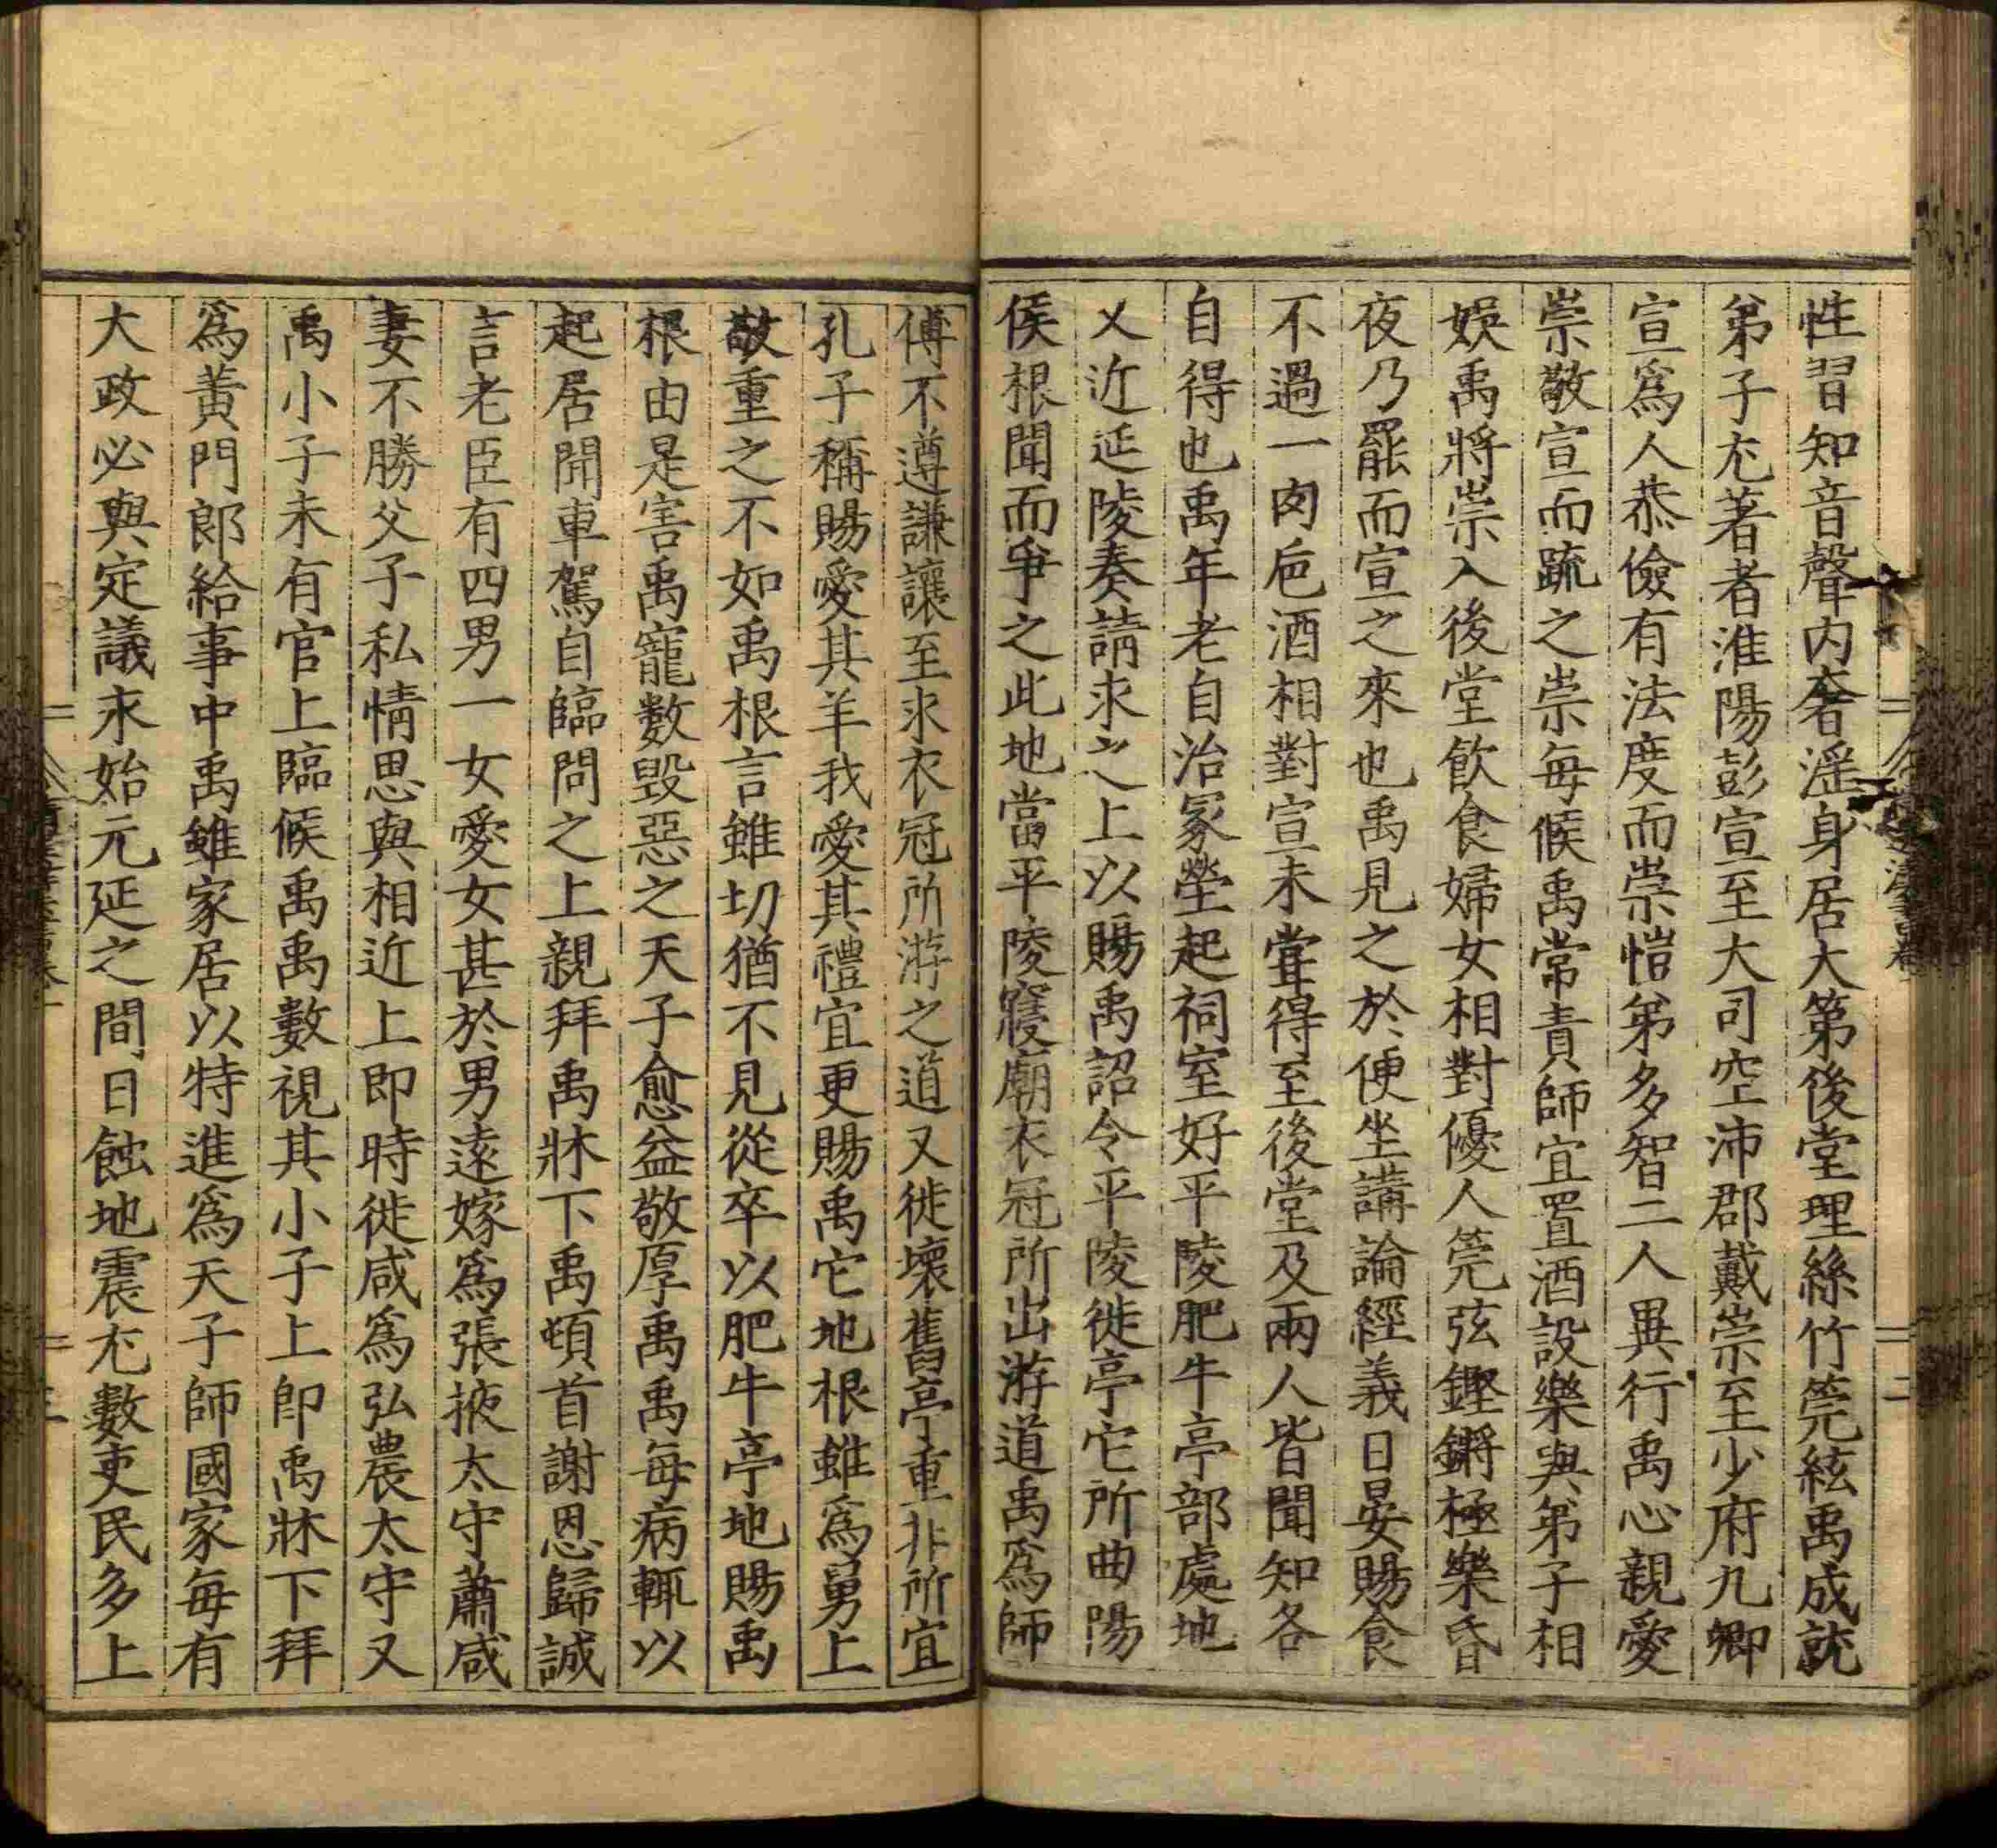 性習知音聲内奢淫身居大第後堂理絲竹筦絃禹成就
弟子尤著者淮陽彭宣至大司空沛郡戴崇至少府九卿
宣爲人恭儉有法度而崇愷弟多智二人異行禹心親愛
崇敬宣而疏之崇每候禹常責師宜置酒設樂與弟子相
娛禹將崇入後堂飲食婦女相對優人筦弦鏗鏘極樂昏
夜乃罷而宣之來也禹見之於便坐講論經義日晏賜食
不過一肉巵酒相對宣未嘗得至後堂及兩人皆聞知各
自得也禹年老自治冢塋起祠室好平陵肥牛亭部處地
又近延陵奏請求之上以賜禹詔令平陵徙亭它所曲陽
侯根聞而爭之此地當平陵寢廟衣冠所出游道禹爲師
傅不遵謙讓至求衣冠所游之道又徙壞舊亭重非所宜
孔子稱賜愛其羊我愛其禮宜更賜禹它地根雖爲舅上
敬重之不如禹根言雖切猶不見從卒以肥牛亭地賜禹
根由是害禹寵數毀惡之天子愈益敬厚禹禹每病輒以
起居聞車駕自臨問之上親拜禹牀下禹頓首謝恩歸誠
言老臣有四男一女愛女甚於男遠嫁爲張掖太守蕭咸
妻不勝父子私情思與相近上即時徙咸爲弘農太守又
禹小子未有官上臨候禹禹數視其小子上卽禹牀下拜
爲黃門郎給事中禹雖家居以特進爲天子師國家每有
大政必與定議永始元延之間日蝕地震尤數吏民多上